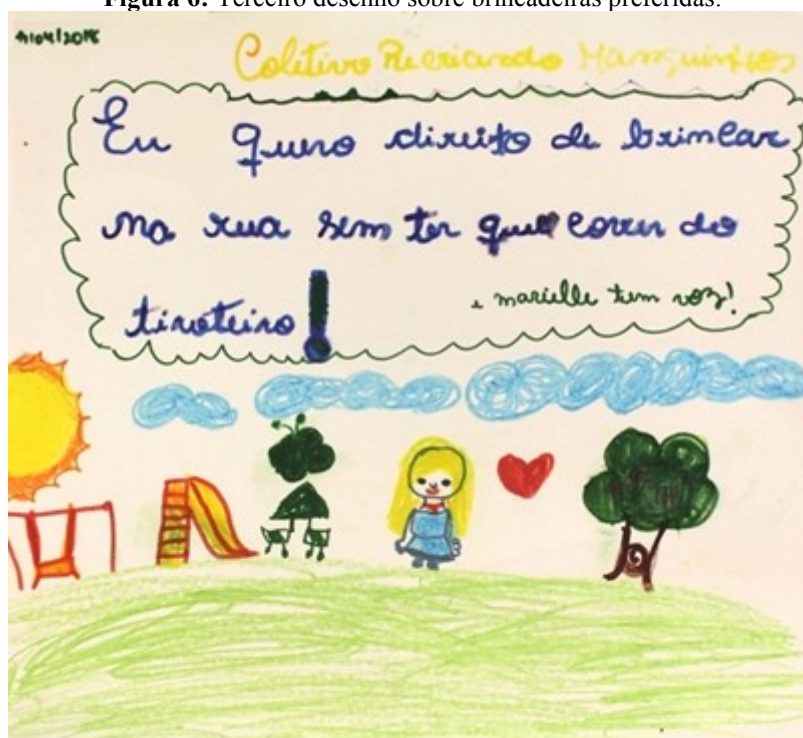 Figura 6: Terceiro desenho sobre brincadeiras preferidas.
Coletivo Recriando Manguinhos
Eu quero direito de brincar
na rua sem ter que correr do
tiroteiro!
e marielle tem voz!